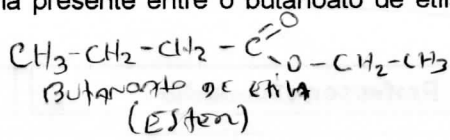 na presente entre o butanoato de etil
CH₃-CH₂-CH₂-C=O
O-CH₂-CH₃
Butanoato de etila
(Ester)